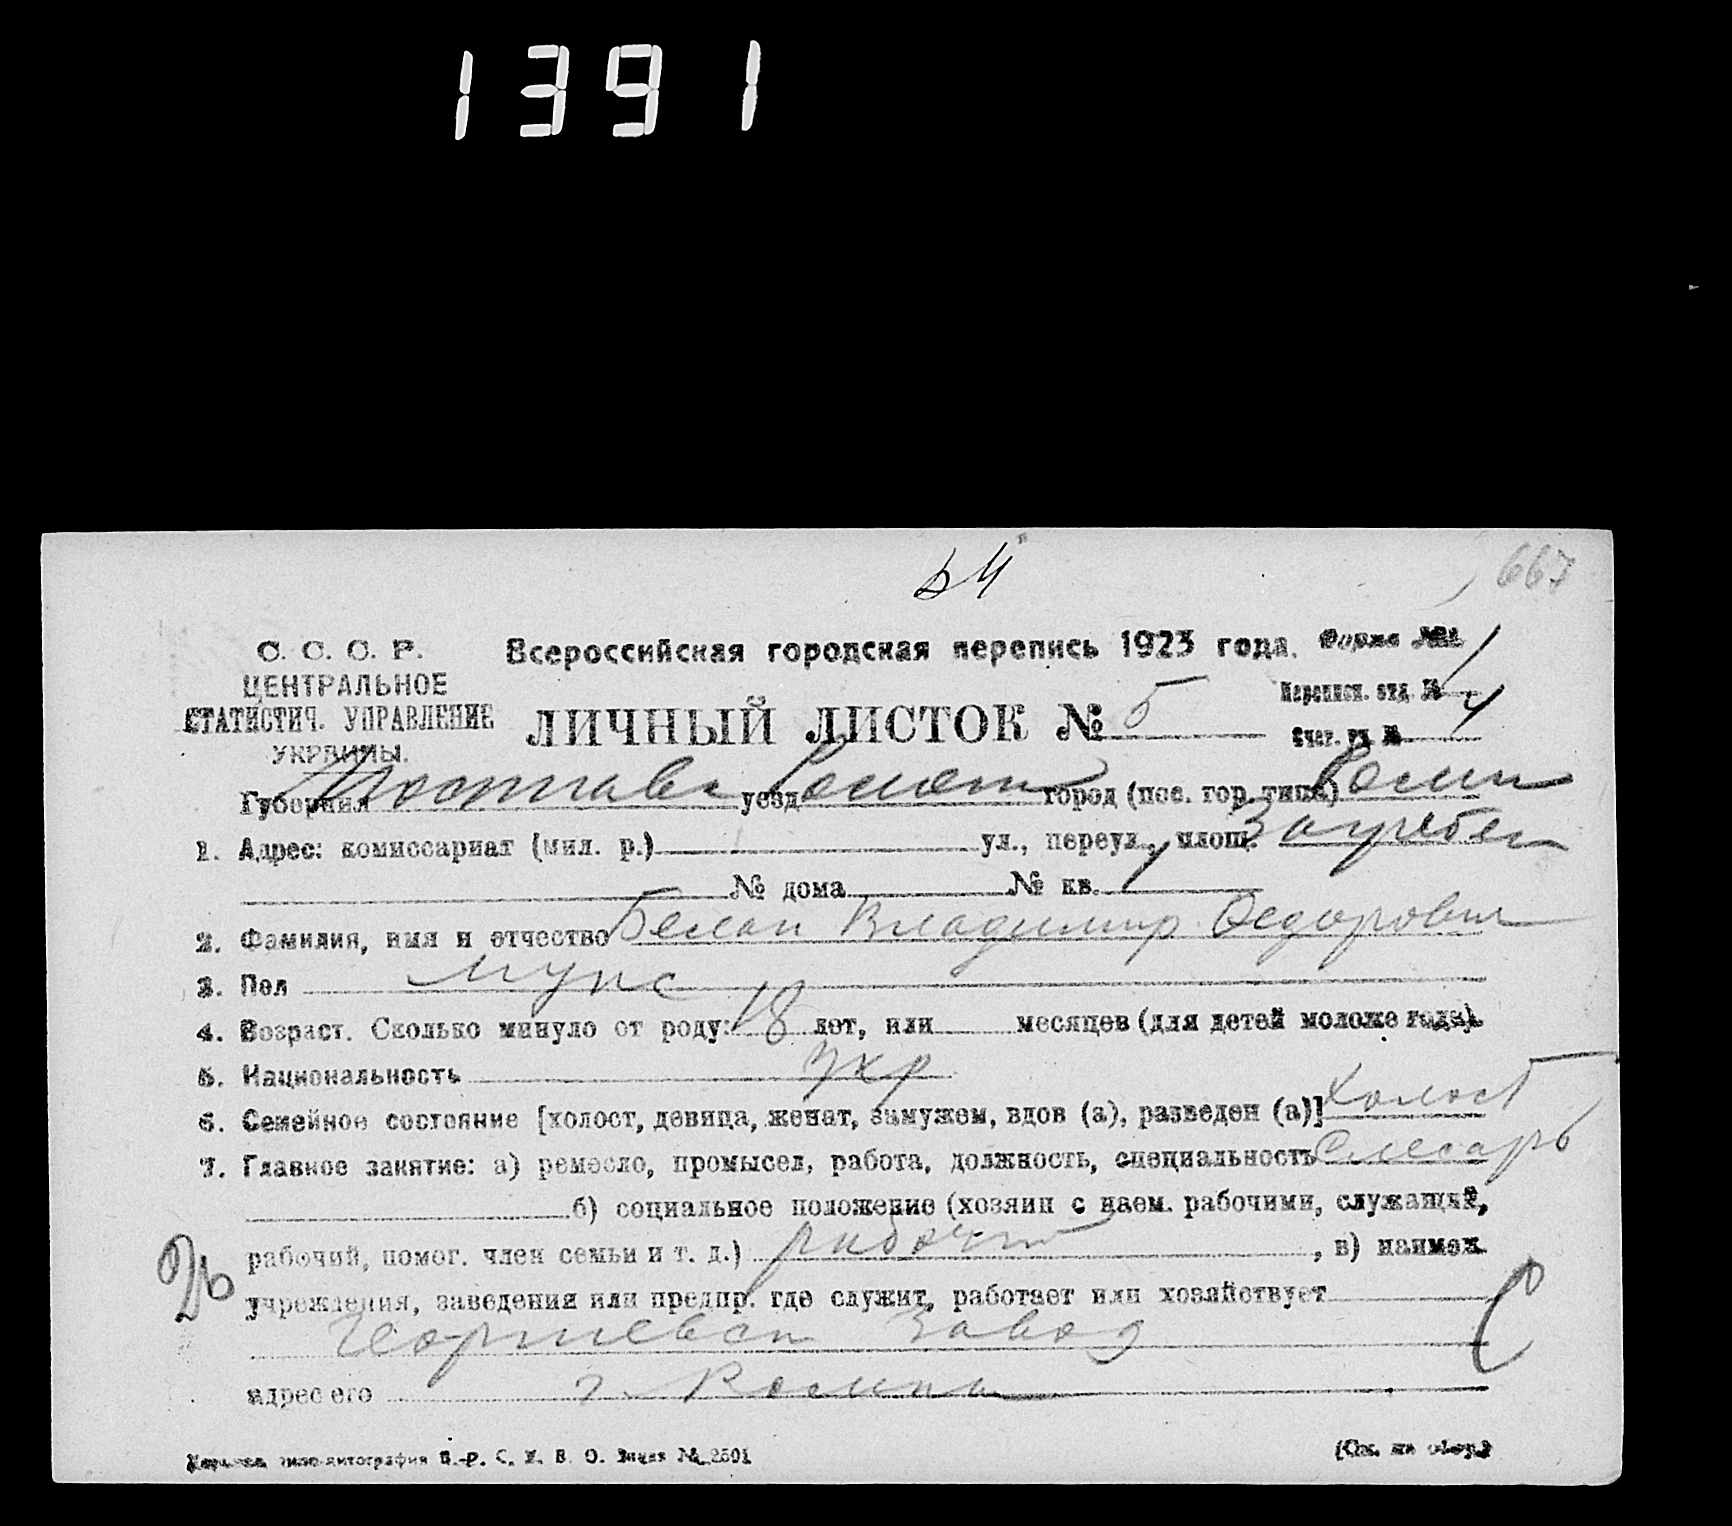 1391
54
667
С. С. С. Р.
ЦЕНТРАЛЬНОЕ
СТАТИСТИЧ. УПРАВЛЕНИЕ
УКРАИНЫ.
Всероссийская городская перепись 1923 года. Форма №
ЛИЧНЫЙ ЛИСТОК № 5
Переписн. отд. № 1
Счет. уч. № 4
Губерния Полтавс уезд Роменск город (пос. гор. типа) Ромны
1. Адрес: комиссариат (мил. р.) ул., переул., площ. Загребел
№ дома № кв. 1
2. Фамилия, имя и отчество Белан Владимир Федорович
3. Пол мужс
4. Возраст. Сколько минуло от роду: 18 лет, или месяцев (для детей моложе года).
5. Национальность Укр
6. Семейное состояние [холост, девица, женат, замужем, вдов (а), разведен (а)] Холост
7. Главное занятие: а) ремесло, промысел, работа, должность, специальность Слесарь
б) социальное положение (хозяин с наем. рабочими, служащий,
рабочий, помог. член семьи и т. д.) рабочий, в) наимен.
учреждения, заведения или предпр. где служит, работает или хозяйствует
Завод
адрес его г. Ромны
типо-литография П.-Р. С. Х. В. О. Заказ № 2501
(См. на обор.)